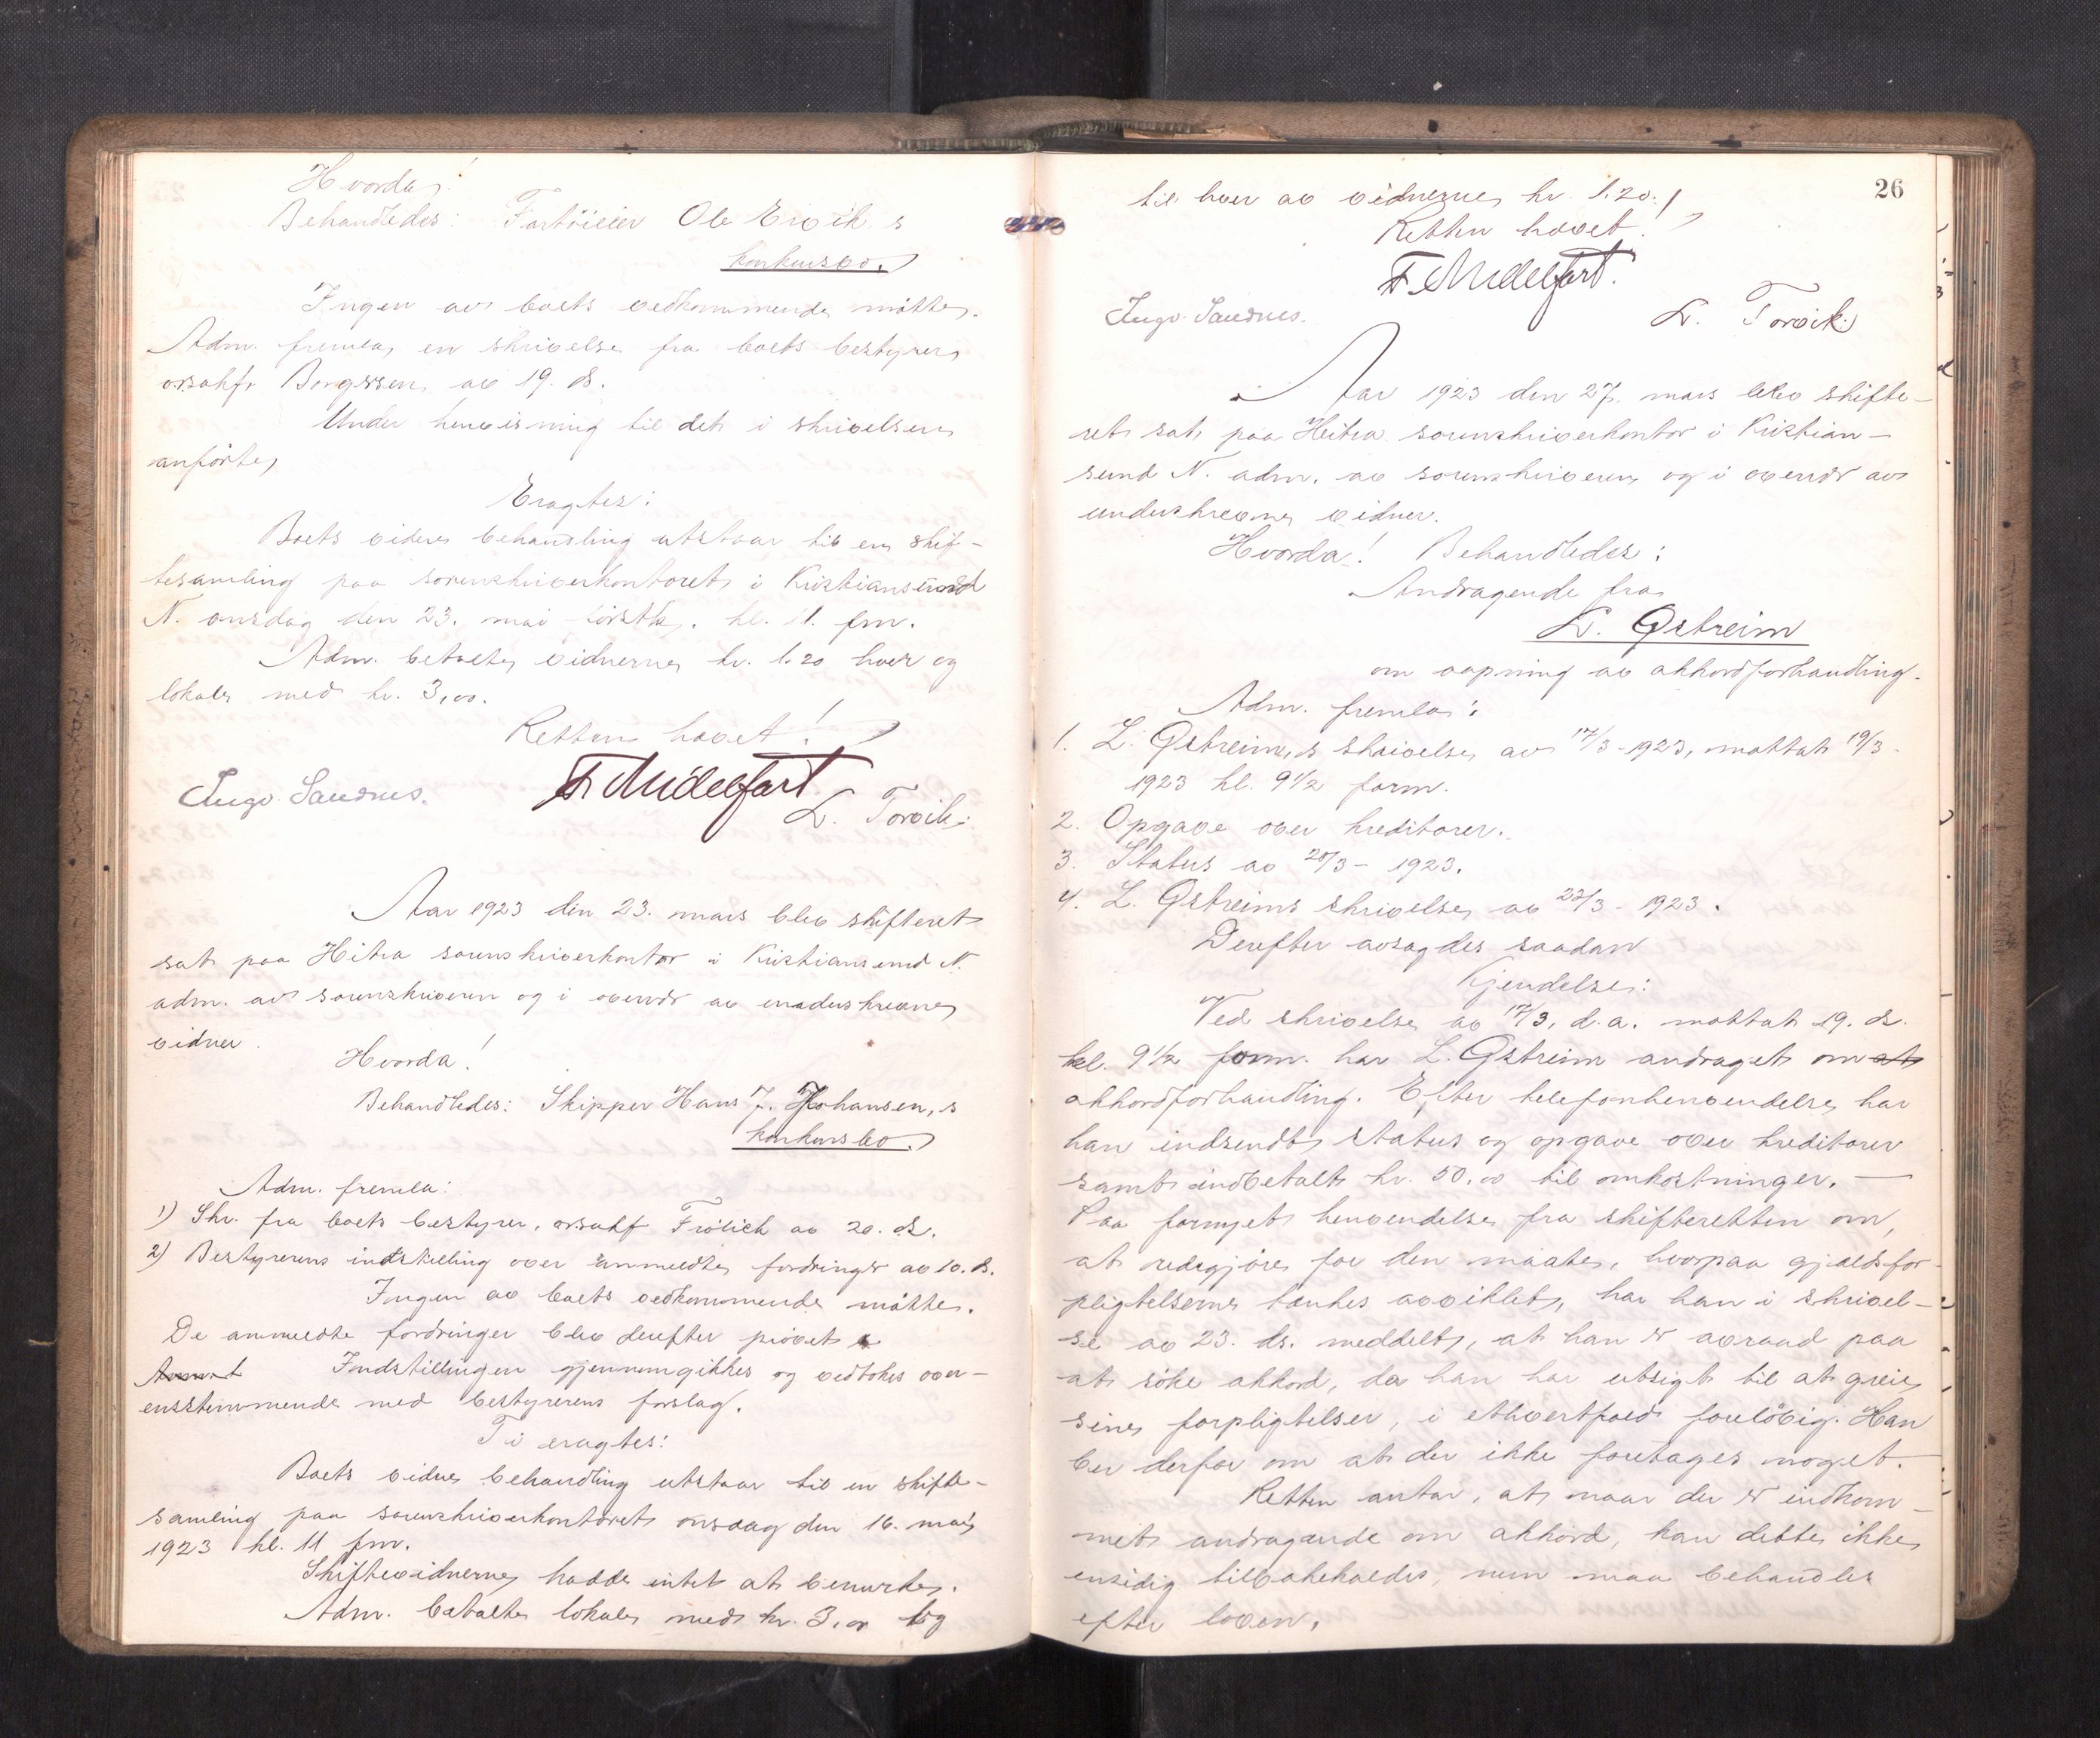 Hvorda!
Behandledes: Fartöieier Ole Ervik's
konkursbo.
Ingen av boets vedkommende møtte.
Adm. fremla en skrivelse fra boets bestyrer
o.r.sakf. Borgersen av 19. ds.
Under henvisning til det i skrivelsen
anførte,
Eragtes:
Boets videre behandling utstaar til en skif-
tesamling paa sorenskriverkontoret i Kristiansund
N. onsdag den 23. mai førstk. kl. 11. fm.
Adm. betalte vidnerne kr. 1.20 hver og
lokale med kr. 3,00.
Retten hævet!
F. Midelfart
Ingv. Sandnes. L. Torvik.
Aar 1923 den 23. mars blev skifteret
sat paa Hitra sorenskriverkontor i Kristiansund N.
adm. av sorenskriveren og i overvær av underskrevne
vidner.
Hvorda!
Behandledes: Skipper Hans J. Johansen's
konkursbo.
Adm. fremla:
1) Skr. fra boets bestyrer, orsakf Frölich av 20. ds.
2) Bestyrerens indstilling over anmeldte fordringer av 10. ds.
Ingen av boets vedkommende møtte.
De anmeldte fordringer blev derefter prøvet
Indstillingen gjennemgikkes og vedtokes over-
ensstemmende med bestyrerens forslag.
Ti eragtes:
Boets videre behandling utstaar til en skifte-
samling paa sorenskriverkontoret onsdag den 16. mai
1923 kl. 11 fm.
Skiftevidnerne hadde intet at bemerke.
Adm. betalte lokale med kr. 3,00 og
26
til hver av vidnerne kr. 1.20.
Retten hævet!
F. Midelfart.
Ingv. Sandnes. L. Torvik.
Aar 1923 den 27. mars blev skifte-
ret sat paa Hitra sorenskriverkontor i Kristian-
sund N. adm. av sorenskriveren og i overvær av
underskrevne vidner.
Hvorda! Behandledes:
Andragende fra
L. Østreim
om aapning av akkordforhandling.
Adm. fremla:
1. L. Østreim,s skrivelse av 17/3-1923, mottat 19/3-
1923 kl. 9 1/2 form.
2. Opgave over kreditorer.
3. Status av 20/3-1923.
4. L. Østreims skrivelse av 23/3-1923.
Derefter avsagdes saadan
Kjendelse:
Ved skrivelse av 17/3. d.a. mottat 19. ds.
kl. 9 1/2 form. har L. Østreim andraget om at
akkordforhandling. Efter telefonhenvendelse har
han indsendt status og opgave over kreditorer
samt indbetalt kr. 50.00 til omkostninger. —
Paa fornyet henvendelse fra skifteretten om,
at redegjøre for den maate, hvorpaa gjældsfor-
pligtelserne tænkes avviklet, har han i skrivel-
se av 23. ds. meddelt, at han er avraad paa
at söke akkord, da han har utsigt til at greie
sine forpligtelser, i ethvertfald foreløbig. Han
ber derfor om at der ikke foretages noget.
Retten antar, at naar der er indkom-
met andragende om akkord, kan dette ikke
ensidig tilbakekaldes, men maa behandles
efter loven.